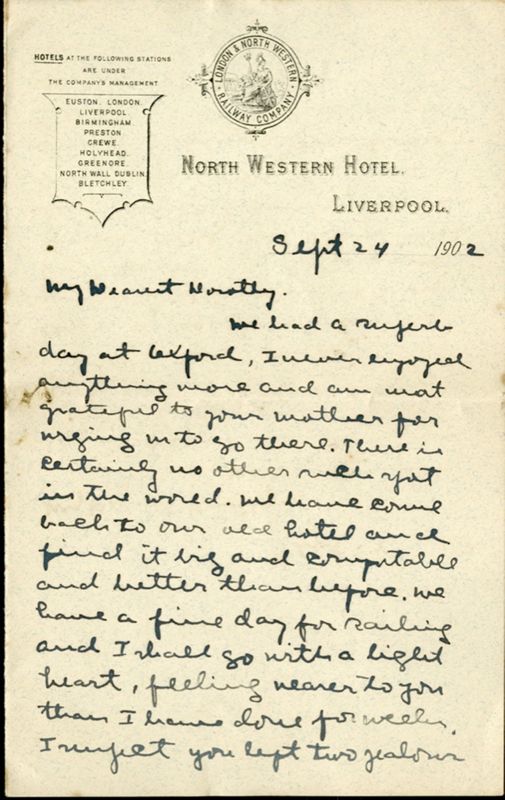 HOTELS AT THE FOLLOWING STATIONS
ARE UNDER
THE COMPANY'S MANAGEMENT
EUSTON, LONDON.
LIVERPOOL
BIRMINGHAM.
PRESTON
CREWE.
HOLYHEAD.
GREENORE.
NORTH WALL DUBLIN.
BLETCHLEY.
LONDON & NORTH WESTERN
RAILWAY COMPANY
NORTH WESTERN HOTEL.
LIVERPOOL.
Sept 24 1902
My Dearest Dorothy.
We had a superb
day at Oxford, I never enjoyed
anything more and am most
grateful to your mother for
urging us to go there. There is
certainly no other such spot
in the world. We have come
back to our old hotel and
find it big and comfortable
and better than before. We
have a fine day for sailing
and I shall go with a light
heart, feeling nearer to you
than I have done for weeks.
I suspect you kept two jealous